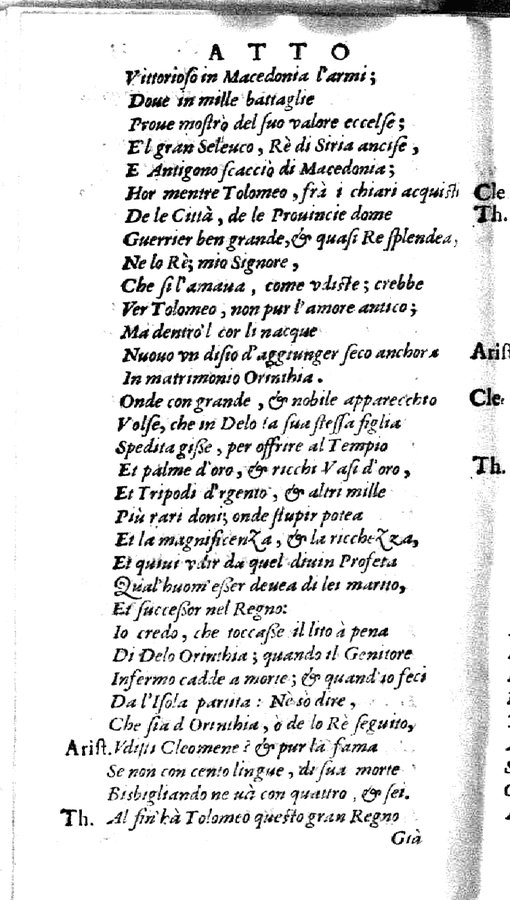 ATTO
Vittorioso in Macedonia l'armi;
Doue in mille battaglie
Proue mostrò del suo valore eccelse;
E'l gran Seleuco, Rè di Siria ancise,
E Antigono scacciò di Macedonia;
Hor mentre Tolomeo, frà i chiari acquisti
De le Città, de le Prouincie dome
Guerrier ben grande, & quasi Re splendea,
Ne lo Rè; mio Signore,
Che sì l'amaua, come vdiste; crebbe
Ver Tolomeo, non pur l'amore antico;
Ma dentro'l cor li nacque
Nuouo vn disio d'aggiunger seco anchora
In matrimonio Orinthia.
Onde con grande, & nobile apparecchio
Volse, che in Delo la sua stessa figlia
Spedita gisse, per offrire al Tempio
Et palme d'oro, & ricchi Vasi d'oro,
Et Tripodi d'rgento, & altri mille
Più rari doni; onde stupir potea
Et la magnificenza, & la ricchezza,
Et quiui vdir da quel diuin Profeta
Qual'huom'esser deuea di lei marito,
Et successor nel Regno:
Io credo, che toccasse il lito à pena
Di Delo Orinthia; quando il Genitore
Infermo cadde a morte; & quand'io feci
Da l'Isola partita: Nè sò dire,
Che sia d'Orinthia, ò de lo Rè seguito,
Arist. Vdisti Cleomene? & pur la fama
Se non con cento lingue, di sua morte
Bisbigliando ne uà con quattro, & sei.
Th. Al fin hà Tolomeo questo gran Regno
Già
Cle
Th.
Arist
Cle
Th.